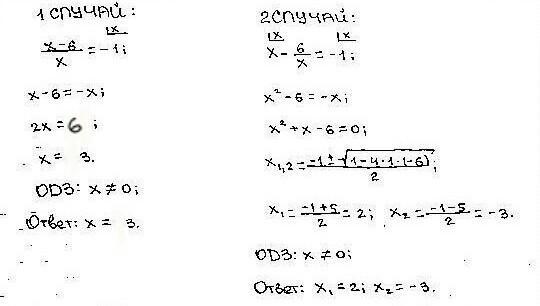 1 СЛУЧАЙ:
x
x-6/x = -1;
x-6=-x;
2x=6;
x= 3.
ОДЗ: x≠0;
Ответ: x= 3.
2 СЛУЧАЙ:
x x
x - 6/x = -1;
x²-6=-x;
x²+x-6=0;
x₁,₂ = -1±√(1-4·1·(-6))/2;
x₁ = -1+5/2 = 2; x₂ = -1-5/2 = -3.
ОДЗ: x≠0;
Ответ: x₁=2; x₂=-3.